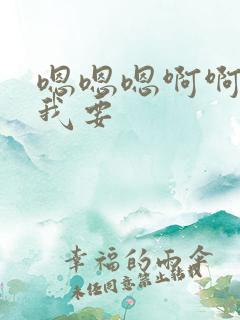 嗯嗯嗯啊啊
我要
幸福的雨伞
未经同意禁止转载